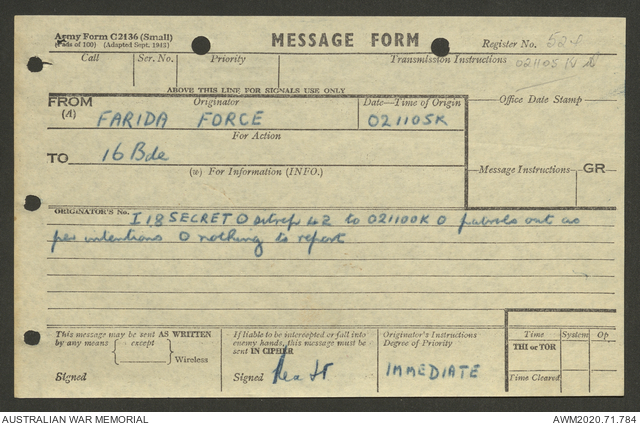 Army Form C2136 (Small)
(Pads of 100) (Adapted Sept. 1943)
MESSAGE FORM
Register No. 524
Call Ser. No. Priority Transmission Instructions 021105K
ABOVE THIS LINE FOR SIGNALS USE ONLY
FROM Originator Date—Time of Origin Office Date Stamp
(A) FARIDA FORCE 021105K
For Action
TO 16 Bde
(w) For Information (INFO.) Message Instructions GR
ORIGINATOR'S No. I 18 SECRET O sitrep 42 to 021100K O patrols out as
per intentions O nothing to report
This message may be sent AS WRITTEN
by any means except
Wireless
Signed
If liable to be intercepted or fall into
enemy hands, this message must be
sent IN CIPHER
Signed
Originator's Instructions
Degree of Priority
IMMEDIATE
Time System Op
THI or TOR
Time Cleared
AUSTRALIAN WAR MEMORIAL AWM2020.71.784